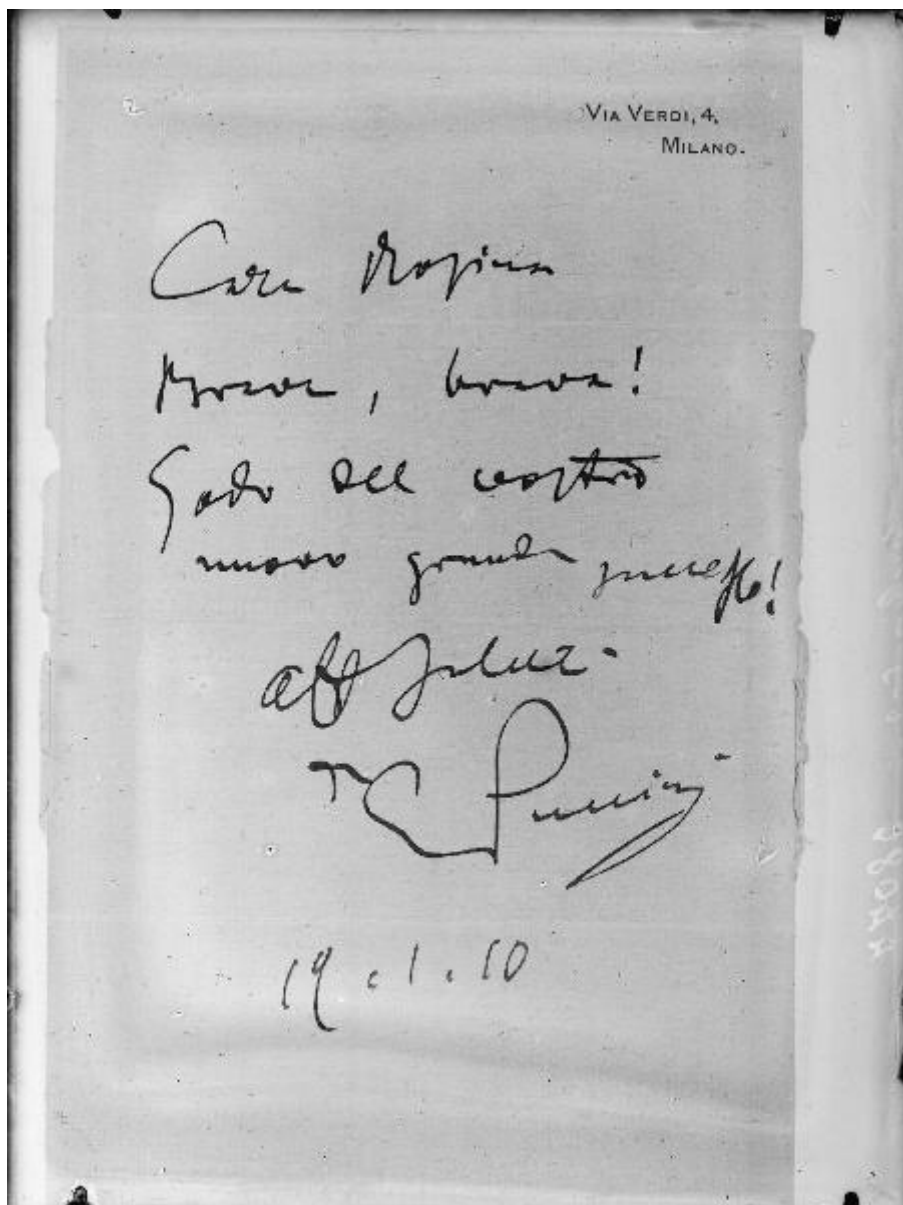 VIA VERDI, 4,
MILANO.
Cara Rosina
Brava, brava!
Godo del vostro
nuovo grande successo!
aff saluti
G Puccini
19.1.10